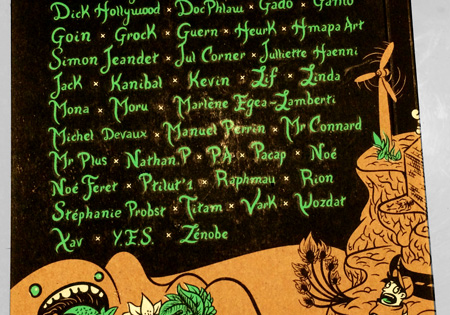 Dick Hollywood × DocPhlau × Gado × Gamo
Goin × Grock × Guern × Heurk × Hmapa Art
Simon Jeandet × Jul Corner × Julliette Haenni
Jack × Kanibal × Kevin × Lif × Linda
Mona × Moru × Marlène Egea-Lamberti
Michel Devaux × Manuel Perrin × Mr Connard
Mr Plus × Nathan.P × PA × Pacap × Noé
Noé Feret × Ptilut'1 × Raphmau × Rion
Stéphanie Probst × Titam × Vark × Wozdat
Xav × Y.E.S. × Zénobe